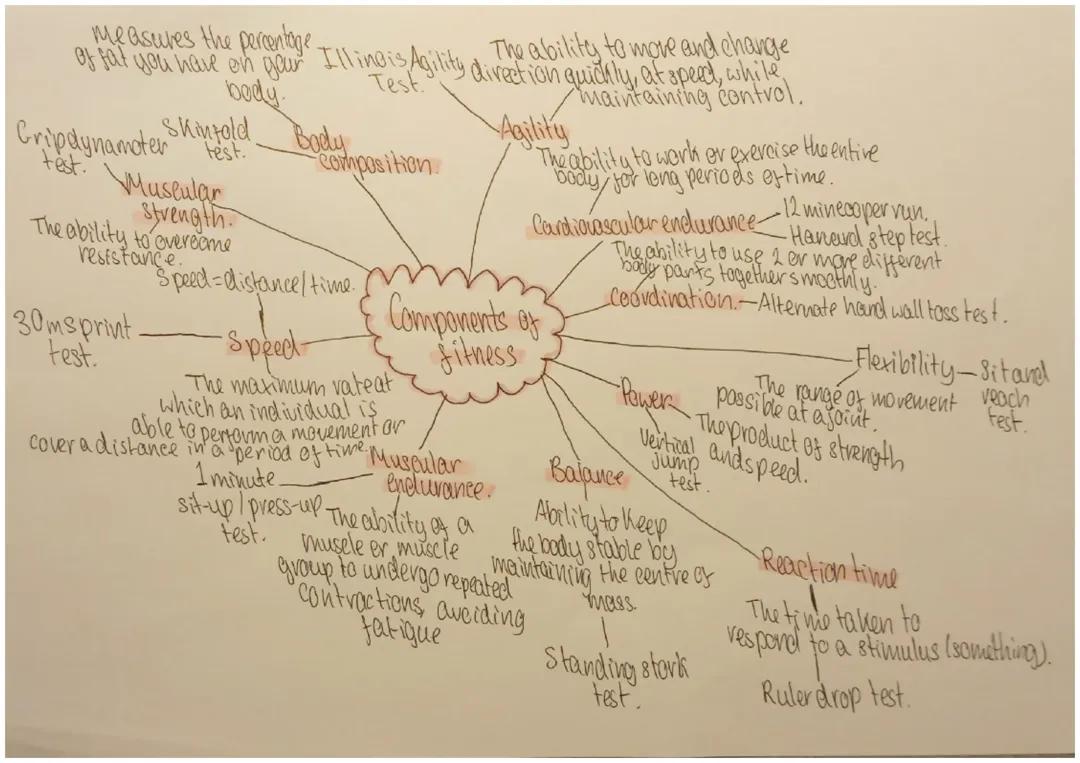 Measures the percentage
of fat you have on your
body.
Skinfold
test.
Body
composition
Illinois Agility
Test.
The ability to move and change
direction quickly, at speed, while
maintaining control.
Agility
Gripdynamoter
test.
Muscular
strength.
The ability to overcome
resistance.
The ability to work or exercise the entire
body, for long periods of time.
Cardiovascular endurance
12 min cooper run.
Harvard step test.
The ability to use 2 or more different
body parts together smoothly.
Coordination.
Alternate hand wall toss test.
Speed=distance/time.
30m sprint
test.
Speed
The maximum rate at
which an individual is
able to perform a movement or
cover a distance in a period of time.
Components of
fitness
Flexibility
Sit and
reach
test.
The range of movement
possible at a joint.
Power
Vertical
jump
test.
The product of strength
and speed.
Muscular
endurance.
1 minute
sit-up/press-up
test.
The ability of a
muscle or muscle
group to undergo repeated
contractions, avoiding
fatigue
Balance
Ability to keep
the body stable by
maintaining the centre of
mass.
Standing stork
test.
Reaction time
The time taken to
respond to a stimulus (something).
Ruler drop test.